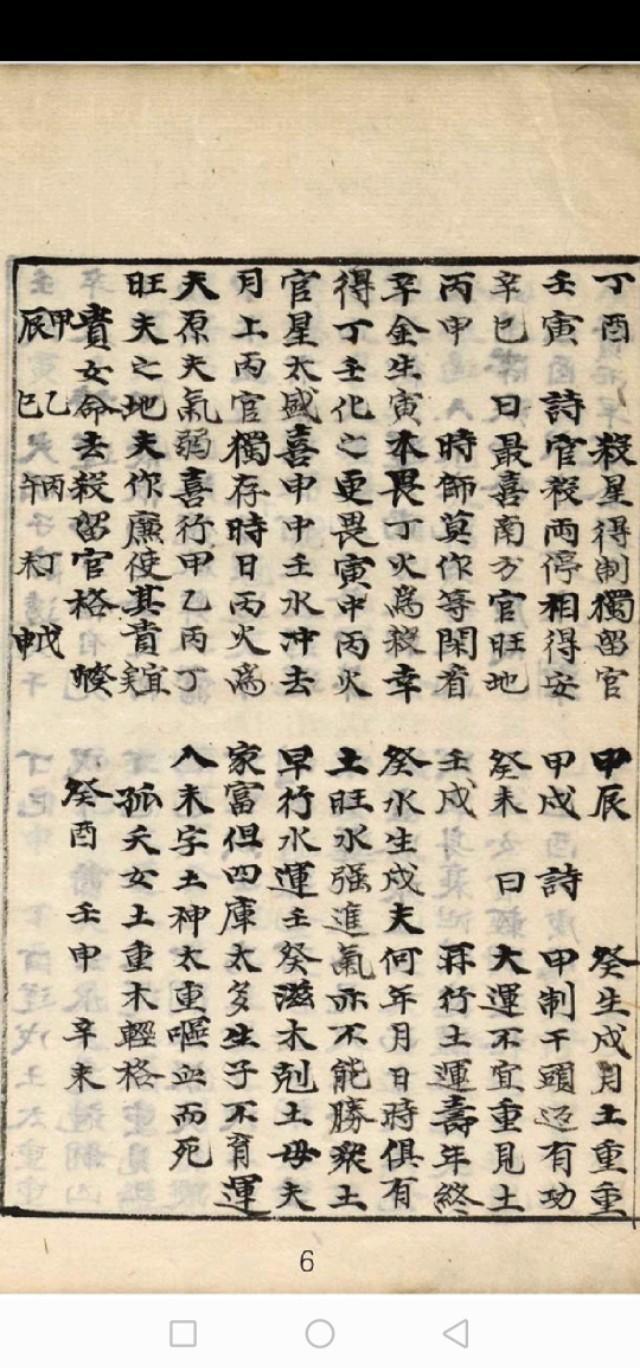 丁酉 殺星得制獨留官
壬寅 詩官殺兩停相得安
辛巳 曰最喜南方官旺地
丙申 時師莫作等閑看
辛金生寅木畏丁火為殺幸
得丁壬化之更畏寅中丙火
官星太盛喜申中壬水冲去
月上丙官獨存時日丙火為
夫原夫氣弱喜行甲乙丙丁
旺夫之地夫作廉使其貴宜
貴女命去殺留官格
甲辰 乙巳 丙午 丁未 戊申
甲辰 癸生戌月土重重
甲戌 詩 甲制干頭有功
癸未 曰 大運不宜重見土
壬戌 再行土運壽年終
癸水生戌夫何年月日時俱有
土旺水强進氣亦不能勝衆土
早行水運壬癸滋木剋土母夫
家富但四庫太多生子不育運
入未字土神太重嘔血而死
孤夭女土重木輕格
癸酉 壬申 辛未
6